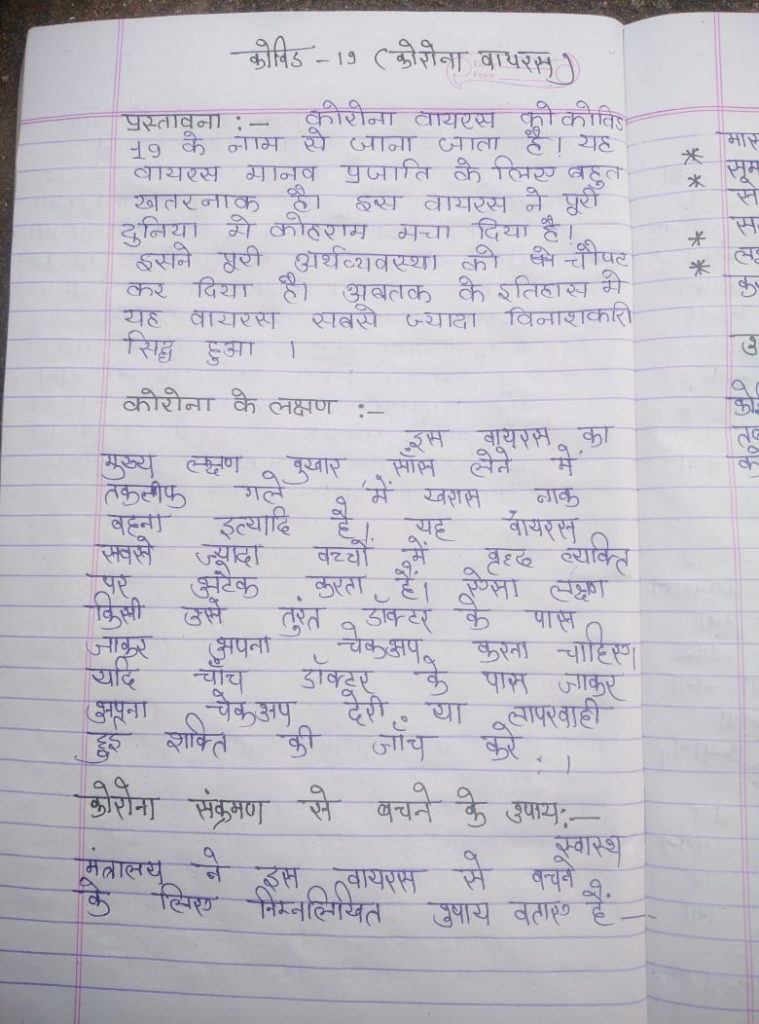 कोविड - 19 (कोरोना वायरस)
प्रस्तावना :- कोरोना वायरस को कोविड
19 के नाम से जाना जाता है। यह
वायरस मानव प्रजाति के लिए बहुत
खतरनाक है। इस वायरस ने पूरी
दुनिया मे कोहराम मचा दिया है।
इसने पूरी अर्थव्यवस्था को चौपट
कर दिया है। अबतक के इतिहास मे
यह वायरस सबसे ज्यादा विनाशकारी
सिद्ध हुआ ।
कोरोना के लक्षण :-
इस वायरस का
मुख्य लक्षण बुखार, साँस लेने में,
तकलीफ गले में खरास नाक
बहना इत्यादि है। यह वायरस
सबसे ज्यादा बच्चों में वृद्ध व्यक्ति
पर अटैक करता है। ऐसा लक्षण
किसी उसे तुरंत डॉक्टर के पास
जाकर अपना चेकअप करना चाहिए।
यदि चाँच डॉक्टर के पास जाकर
अपना चेकअप देरी या लापरवाही
हुइ शक्ति की जाँच करे ।
कोरोना संक्रमण से बचने के उपाय:-
स्वास्थ
मंत्रालय ने इस वायरस से बचने
के लिए निम्नलिखित उपाय बताए है -
*
*
*
*